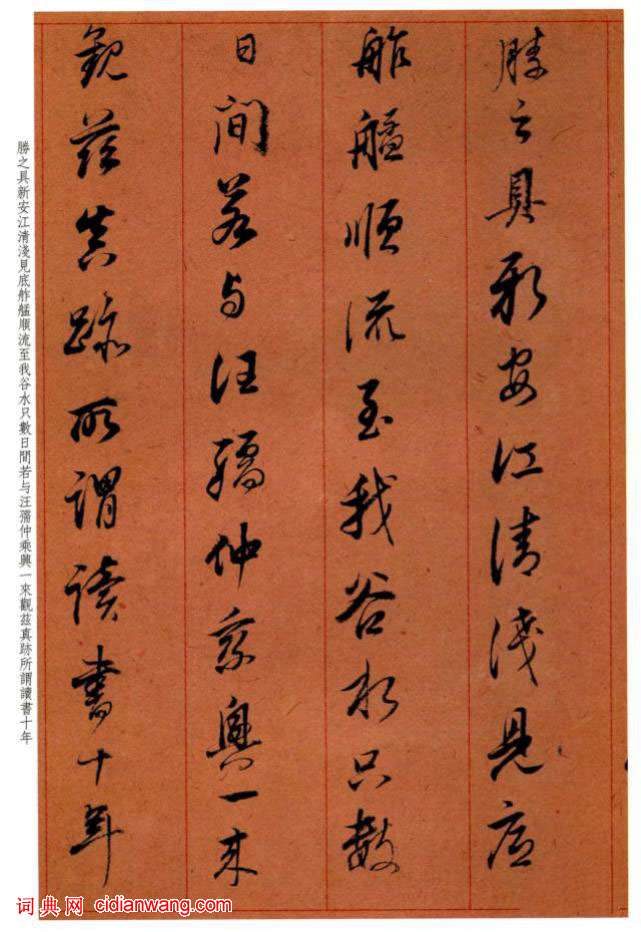 勝之具新安江清淺見底
舴艋順流至我谷水只數
日間若与汪孺仲乘興一来
觀茲真跡所謂讀書十年
勝之具新安江清淺見底舴艋順流至我谷水只數日間若与汪孺仲乘興一來觀茲真跡所謂讀書十年
词典网 cidianwang.com